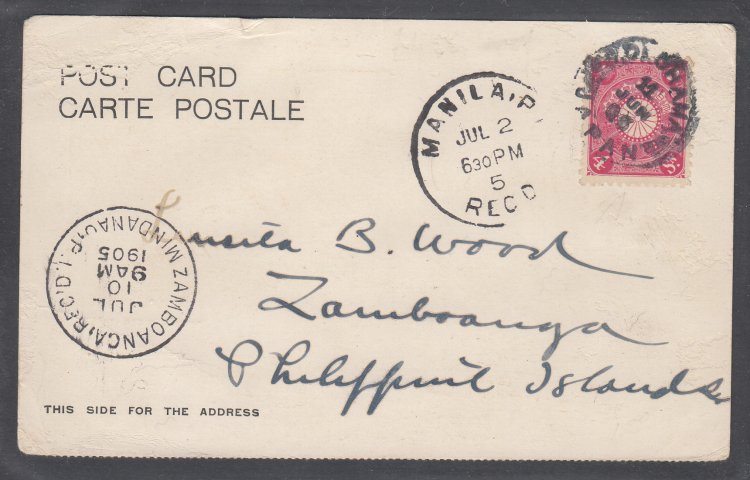 POST CARD
CARTE POSTALE
MANILA, P
JUL 2
630PM
5
REC'D
YOKOHAMA
JAPAN
JUN
05
4 Sn.
ZAMBOANGA, MINDANAO, P.I.
REC'D.
JUL
10
9AM
1905
B. Wood
Zamboanga
Philippine Islands
THIS SIDE FOR THE ADDRESS